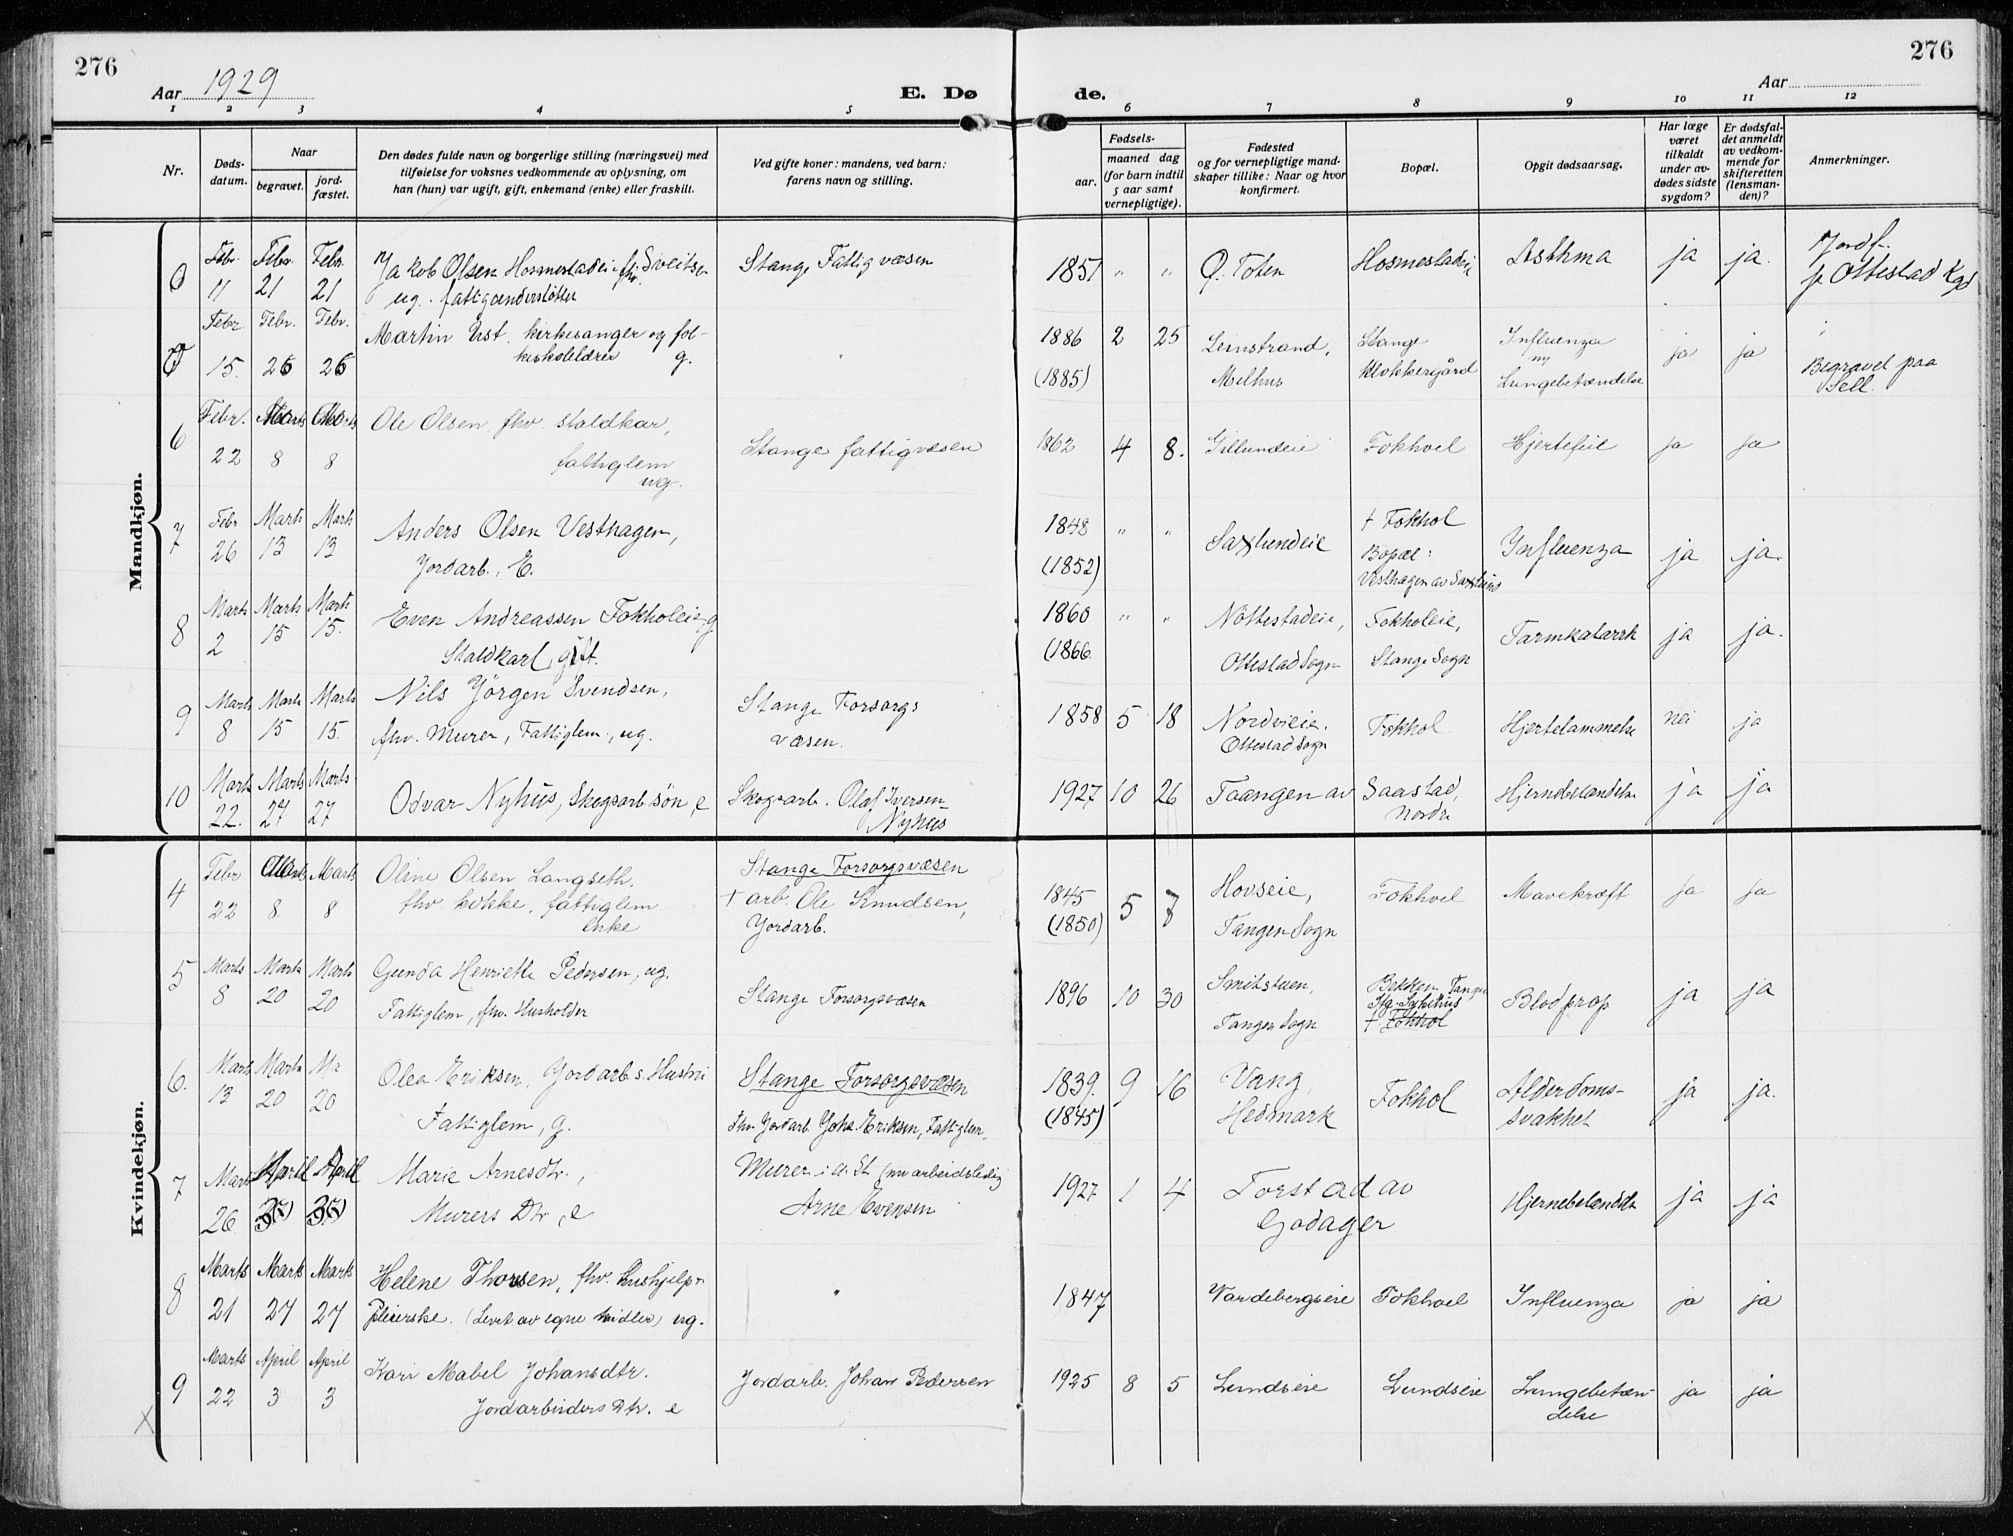 276
276
Aar 1929
E. Dø
de.
Aar
1 2 3 4 5 6 7 8 9 10 11 12
Nr.
Døds-
datum.
Naar
begravet.
jord-
fæstet.
Den dødes fulde navn og borgerlige stilling (næringsvei) med
tilføielse for voksnes vedkommende av oplysning, om
han (hun) var ugift, gift, enkemand (enke) eller fraskilt.
Ved gifte koner: mandens, ved barn:
farens navn og stilling.
Fødsels-
aar.
maaned dag
(for barn indtil
5 aar samt
vernepligtige).
Fødested
og for vernepligtige mand-
skaper tillike: Naar og hvor
konfirmert.
Bopæl.
Opgit dødsaarsag.
Har læge
været
tilkaldt
under av-
dødes sidste
sygdom?
Er dødsfal-
det anmeldt
av vedkom-
mende for
skifteretten
(lensman-
den)?
Anmerkninger.
Mandkjøn.
Febr. Febr. Febr. Jakob Olsen Hosmestadeie fhv. Sveitser Stange Fattigvæsen 1851 " " Ø. Toten Hosmestadeie Asthma ja ja. Jordf.
11 21 21 ug. fattigunderstøttet Ottestad Kgd
Febr. Febr. Febr. Martin Ust. kirkesanger og fol- 1886 2 25 Leinstrand, Stange Influenza ja ja
15. 26 26 keskolelærer g. " (1885) Melhus Klokkergård Lungebetændelse Begravet paa
Sell.
6 Febr. Marts Marts Ole Olsen fhv. staldkar, Stange fattigvæsen 1862 4 8. Gillundeie Fokhoel Hjertefeil ja ja
22 8 8 fattiglem
ug.
7 Febr Marts Marts Anders Olsen Vesthagen, 1848 " " Saxlundeie + Fokhol Influenza ja ja.
26 13 13 Jordarb., E. (1852) Bopæl:
Vesthagen av Saxlund
8 Marts Marts Marts Even Andreassen Fokholeie, g 1860 " " Nöttestadeie, Fokholeie, Tarmkatarrh ja ja.
2 15 15. Staldkarl, gift. (1866 Ottestad Sogn Stange Sogn
9 Marts Marts Marts Nils Jörgen Svendsen, Stange Forsorgs 1858 5 18 Nordvieie. Fokhol Hjertelammelse nei ja
8 15 15. fhv. Murer, Fattiglem, ug. væsen. Ottestad Sogn
10 Marts Marts Marts Odvar Nyhus, Skogsarb. sön, e Skogsarb. Olaf Iversen- 1927 10 26 Taangen av Saastad, Hjernebetændelse ja ja
22. 27 27 Nyhus Nordre
Kvindekjøn.
4 Febr Marts Marts Oline Olsen Langseth. Stange Forsorgsvæsen 1845 5 7 Hovseie, Fokhoel Mavekræft ja ja
22 8 8 fhv. kokke, fattiglem + arb. Ole Knudsen, (1850) Tangen Sogn
Enke Jordarb.
5 Marts Marts Marts Gunda Henriette Pedersen, ug. Stange Forsorgsvæsen 1896 10 30 Smitstuen, Bekken Tangen Blodprop ja ja
8 20 20 Fattiglem, fhv. Husholder Tangen Sogn Stg. Sykehus
+ Fokhol
6. Marts Marts Mr Olea Eriksen, Jordarb s. Hustru Stange Forsorgsvæsen 1839. 9 16 Vang, Fokhol Alderdoms- ja ja.
13 20 20 Fattiglem, g. Fhv. Jordarb. Johs. Eriksen, Fattiglem. (1845) Hedmark svakhet
7 Marts April April Marie Arnesdtr., Murer i a. St (nu arbeidsledig 1927 1 4 Torstad av Hjernebetændelse ja ja
26 Murers Dtr, e Arne Evensen Godager
8 Marts Marts Marts Helene Thorsen, fhv. hushjelp- " 1847 Vardebergseie Fokhoel Influenza ja ja
21 27 27 Pleierske. (Levet av egne midler) ug.
9 Marts April April Kari Mabel Johansdtr. Jordarb. Johan Pedersen 1925 8 5 Lundseie Lundseie Lungebetæn- ja ja
22 3 3 Jordarbeiders Dtr. e delse
X